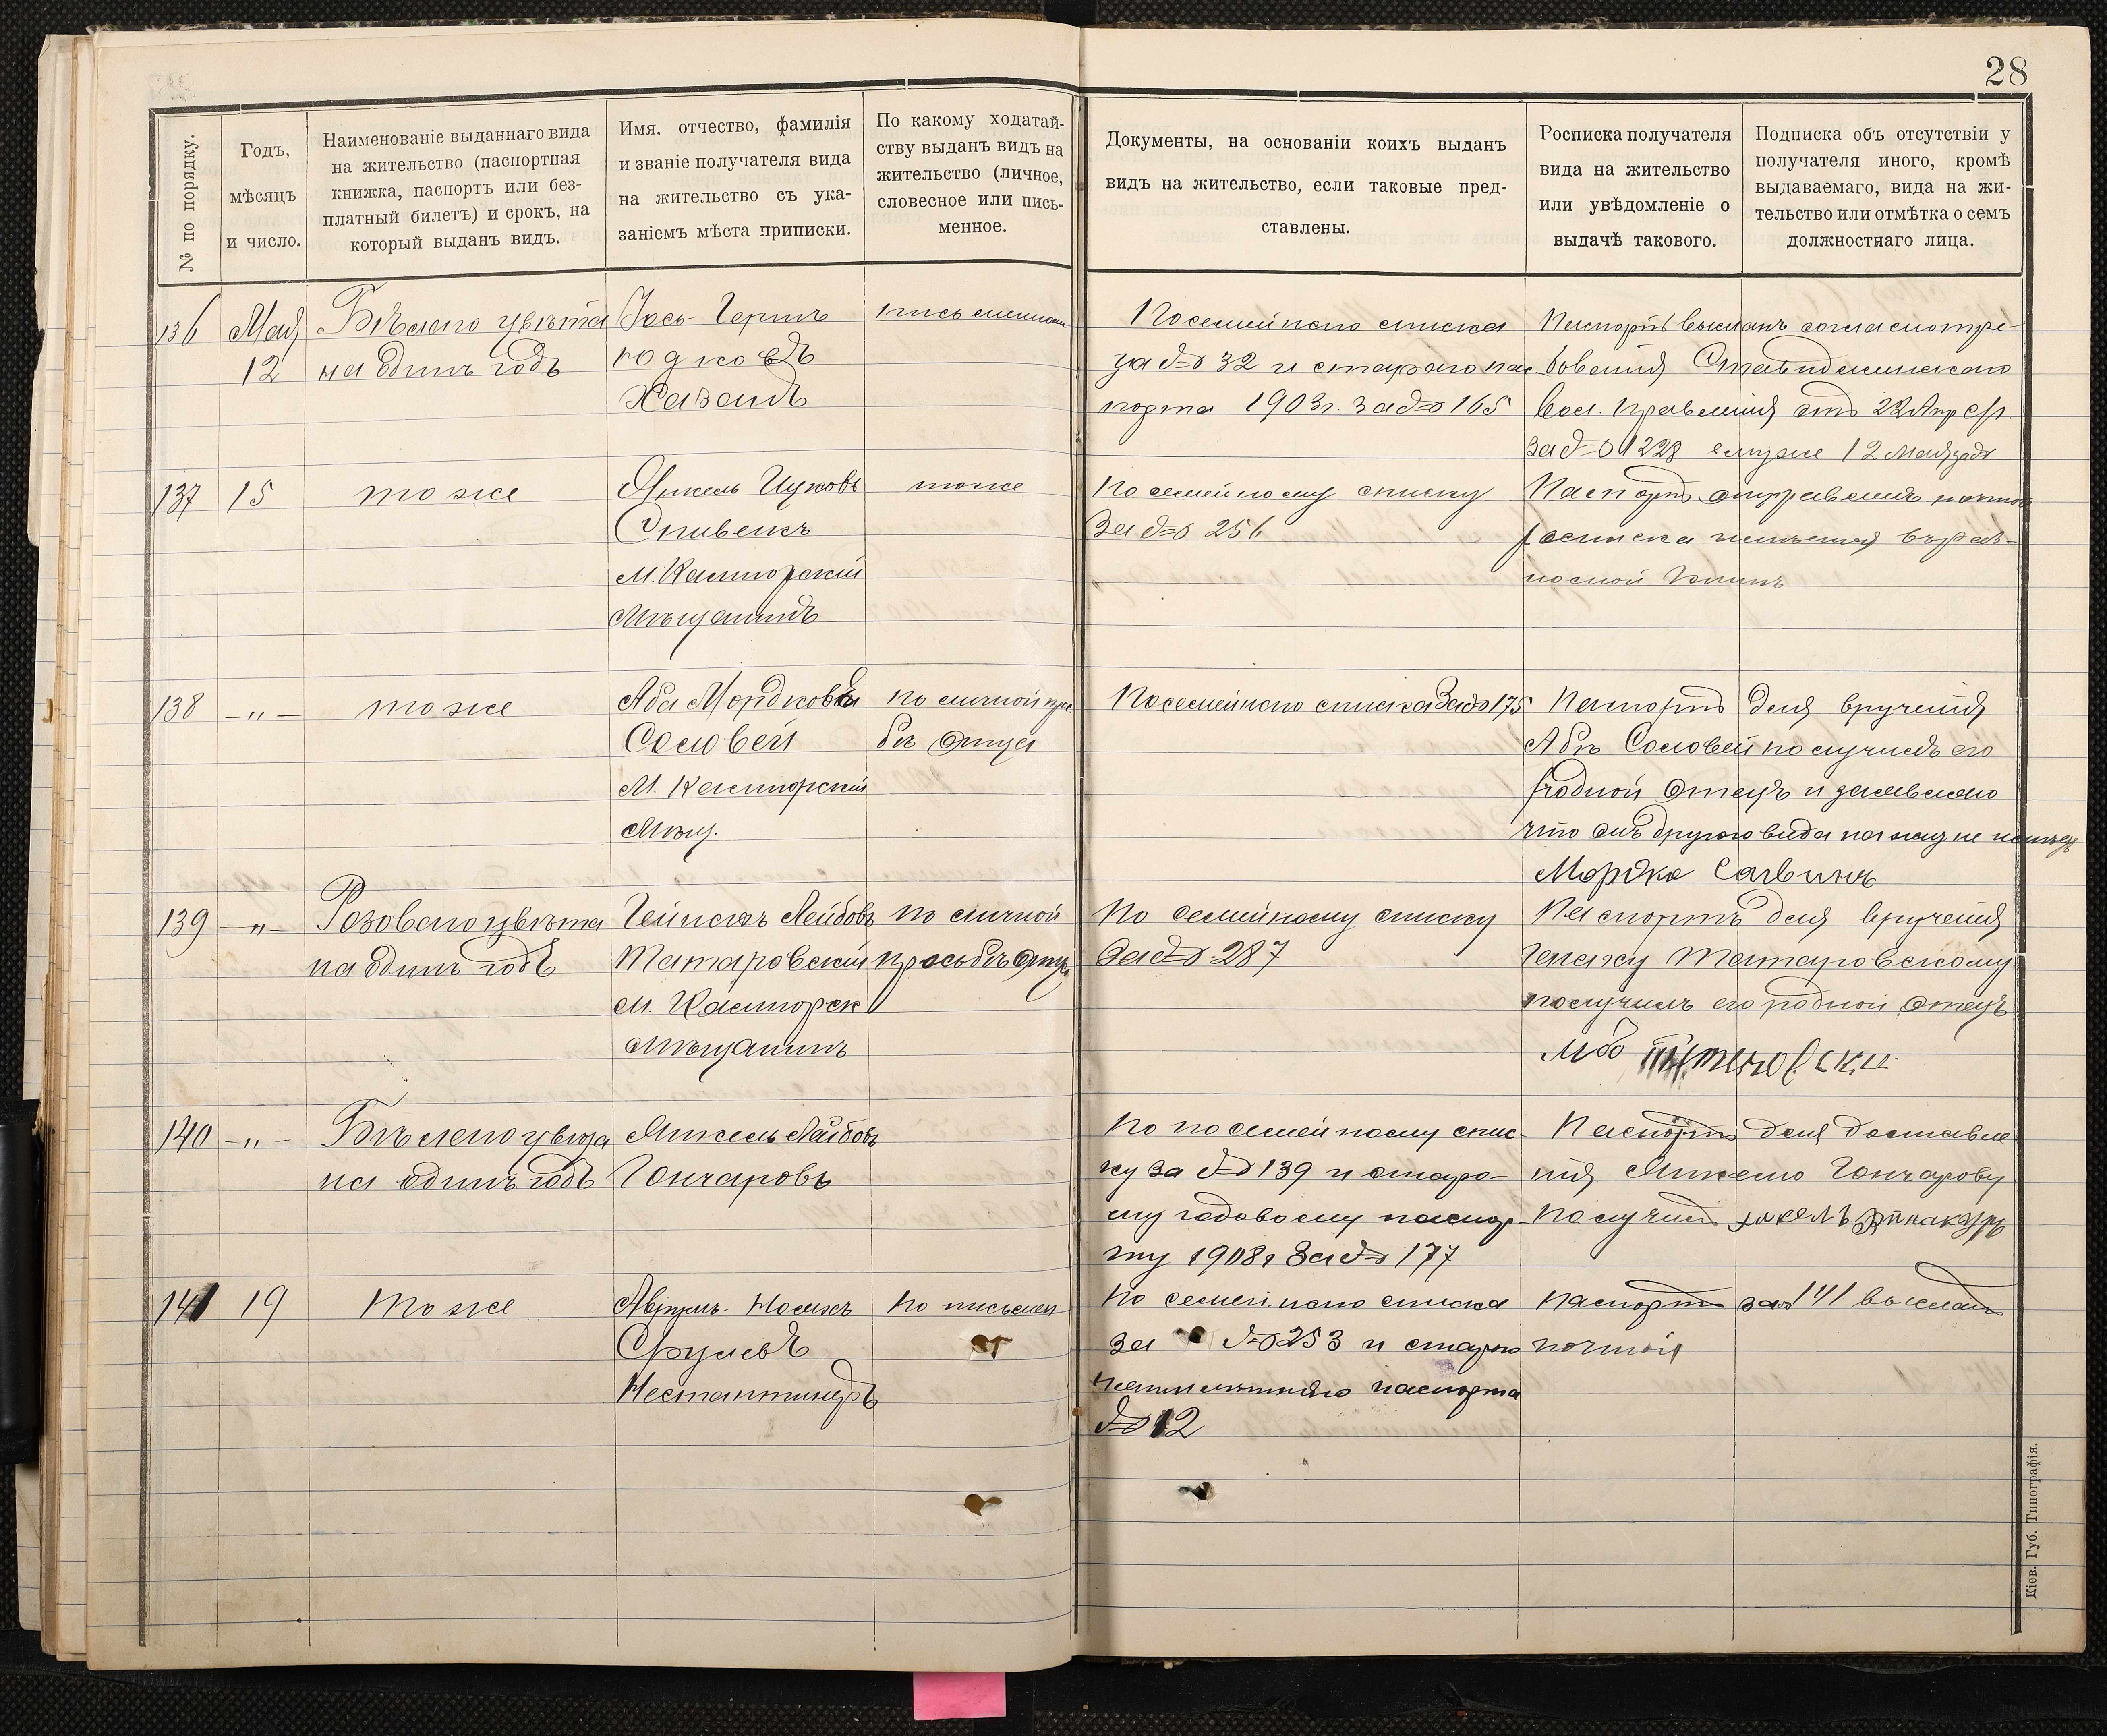 28
№ по порядку.
Годъ,
мѣсяцъ
и число.
Наименованіе выданнаго вида
на жительство (паспортная
книжка, паспортъ или без-
платный билетъ) и срокъ, на
который выданъ видъ.
Имя, отчество, фамилія
и званіе получателя вида
на жительство съ ука-
заніемъ мѣста приписки.
По какому ходатай-
ству выданъ видъ на
жительство (личное,
словесное или пись-
менное.
Документы, на основаніи коихъ выданъ
видъ на жительство, если таковые пред-
ставлены.
Росписка получателя
вида на жительство
или увѣдомленіе о
выдачѣ такового.
Подписка объ отсутствіи у
получателя иного, кромѣ
выдаваемаго, вида на жи-
тельство или отмѣтка о семъ
должностнаго лица.
136
Мая
12
Бѣлаго цвѣта
на одинъ годъ
Іось-Герш
Юдковъ
Хазанъ
По семейного списка
за № 32 и стараго пас
порта 1903 г. за № 165
Паспортъ высланъ согласно тре-
бованія
Вол. Правленія отъ 22 Апр с/г.
за № 1228 12 Мая
137
15
тоже
Янкель Ицковъ
Спивакъ
М.
Мѣщанинъ
тоже
По семейному списку
за № 256
Паспортъ отправленъ почтой
росписка имѣется въ раз-
носной книгѣ
138
-"-
тоже
Аба Мордковъ
Соловей
М.
Мѣщ.
По личной прос
бѣ отца
По семейного списка за № 175
Паспортъ для врученія
Абѣ Соловей получилъ его
родной отецъ и заявлено
что онъ другого вида на жит не имѣетъ
Мордко
139
-"-
Розоваго цвѣта
на одинъ годъ
Лейбовъ
Татаровскій
М.
Мѣщанинъ
По личной
просьбѣ отца
По семейному списку
за № 287
Паспортъ для врученія
Татаровскому
получилъ его родной отецъ
140
-"-
Бѣлаго цвѣта
на одинъ годъ
Янкель Лейбовъ
Гончаровъ
По посемейному спис-
ку за № 139 и старо-
му годовому паспор-
ту 1908 г за № 177
Паспортъ для доставле
нія Янкелю Гончарову
Получилъ
141
19
Тоже
Аврумъ-Носихъ
Срулевъ
По письмен
По семейного списка
за № 253 и стараго
паспорта
№ 12
Паспортъ за № 141 высланъ
почтой
Кіев. Губ. Типографія.